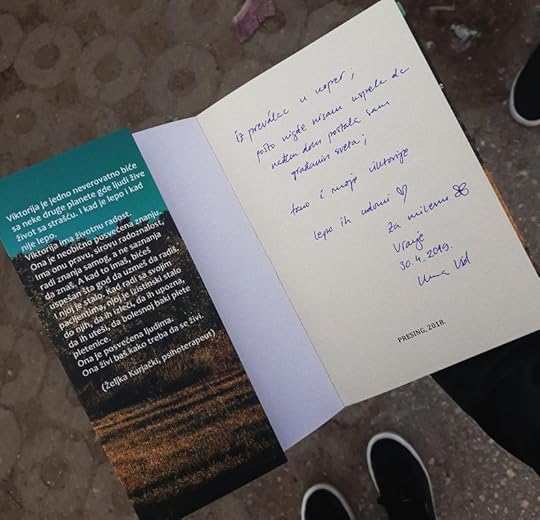 Viktorija je jedno neverovatno biće
sa neke druge planete gde ljudi žive
život sa strašću. I kad je lepo i kad
nije lepo.
Viktorija ima životnu radost.
Ona je neobično posvećena znanju.
Ima onu pravu, sirovu radoznalost,
radi znanja samog, a ne saznanja
da znaš. A kad to imaš, bićeš
uspešan šta god da uzmeš da radiš.
I njoj je stalo. Kad radi sa svojim
pacijentima, njoj je istinski stalo
do njih, da ih izleči, da ih upozna,
da ih uteši, da bolesnoj baki plete
pletenice.
Ona je posvećena ljudima.
Ona živi baš kako treba da se živi.
(Željka Kurjački, psihoterapeut)
iz preválac u naper;
pošto nigde nisam uspela da
nađem dom postala sam
građanin sveta;
i moje viktorije
lepo ih udomi ♡
Za milenu
Vranje
30.4.2019.
PRESING, 2018.